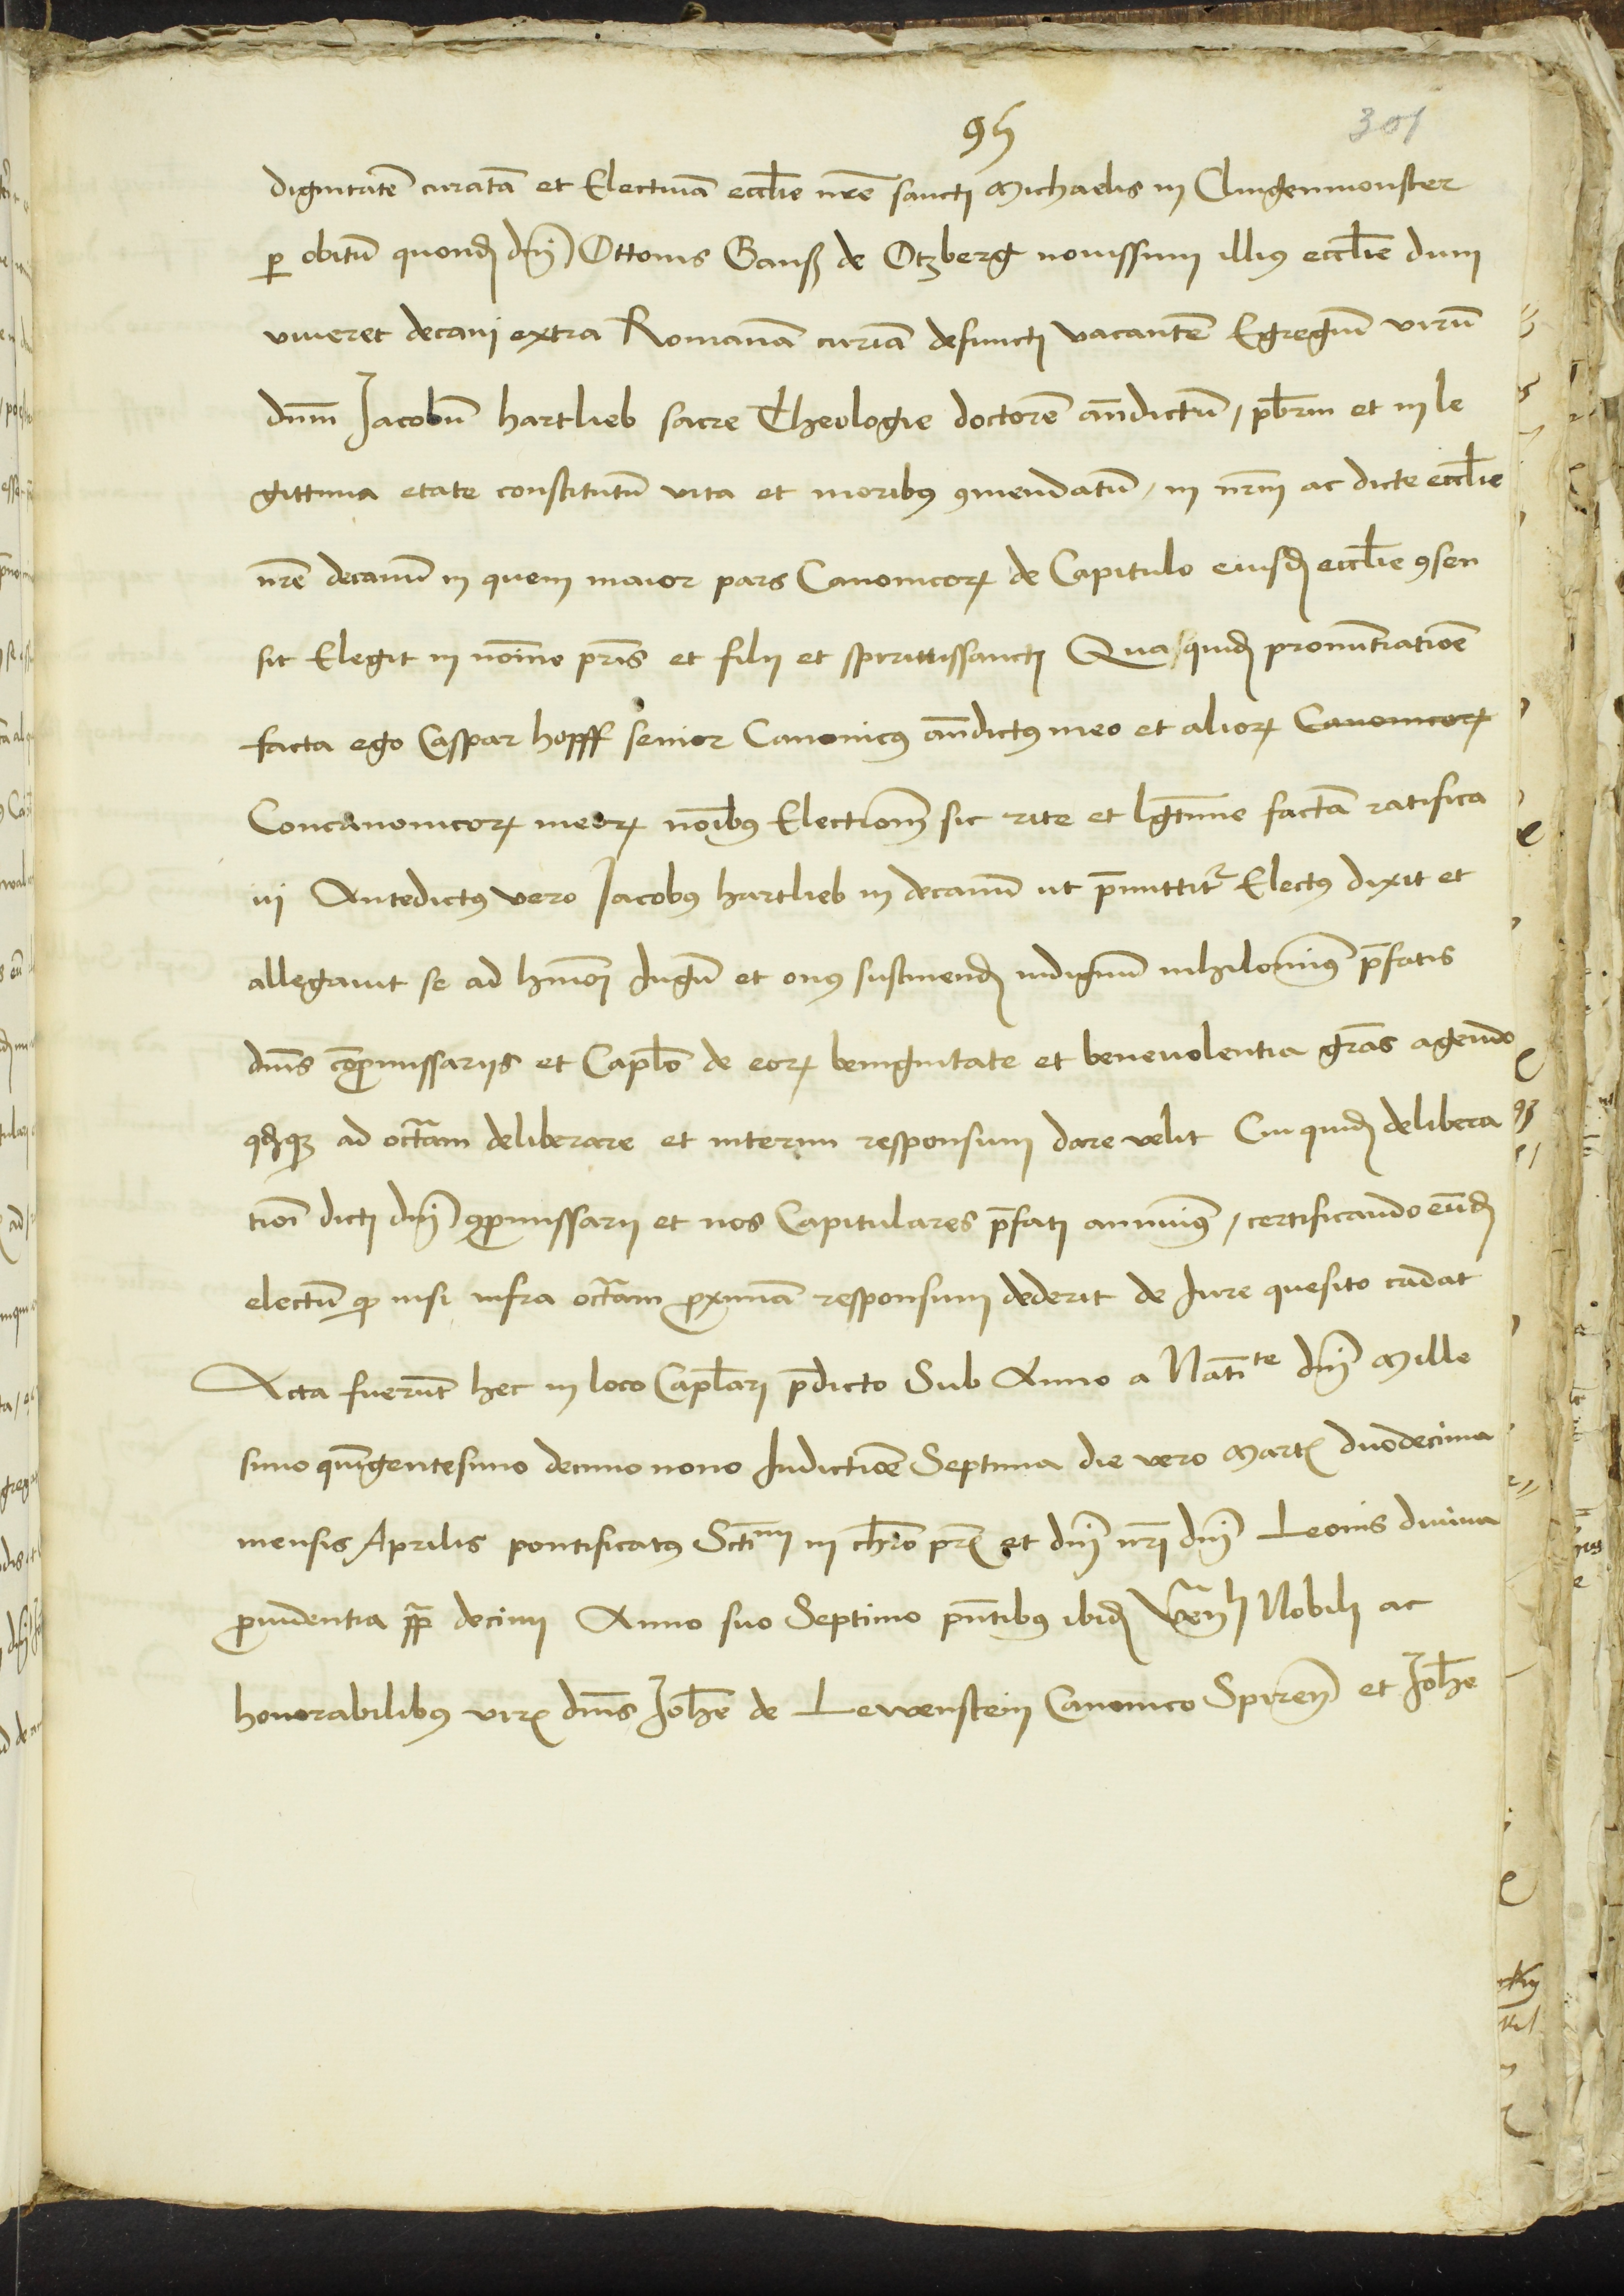 95
301
dignitatē curatā et Electiuā eccl̄ie nr̄e sancti Michaelis in Clingenmonster
ꝑ obitū quond dn̄i Ottonis Ganß de Otzberg nouissimi illiꝰ eccl̄ie dum
viueret decani extra Romanā curiā defuncti vacantē Egregiū virū
dnm̄ Jacobū hartlieb sacre Theologie doctorē an̄dictū / pbr̄m et in le
gittima etate constitutū vita et moribꝰ ꝯmendatū / in nr̄m ac dicte eccl̄ie
nr̄e decanū in quem maior pars Canonicoꝝ de Capitulo eiusd eccl̄ie ꝯsen
sit Elegit in noīne pr̄is et filii et spirittissancti Qua quid pronuntiatiōe
facta ego Caspar hopff senior Canonicꝰ an̄dictꝰ meo et alioꝝ Canonicoꝝ
Concanonicoꝝ meoꝝ noībꝰ Election̄ sic rite et lḡtime factā ratifica
ui Antedictꝰ vero Jacobꝰ hartlieb in decanū ut p̄mittitr Electꝰ dixit et
allegauit se ad hmōi Jugū et onꝰ sustinend indignū nihilominꝰ p̄fatis
dnīs cōpromissariis et Capl̄o de eoꝝ benignitate et beneuolentia grās agendo
ꝙ ad octāam deliberare et interim responsum dare velit Cui quid delibera
tioī dicti dn̄i ꝯpromissarii et nos Capitulares p̄fati annuimꝰ / certificando eūd
electū ꝙ nisi infra octāam ꝓximā responsum dederit de Jure quesito cadat
Acta fuerūt hec in loco Capl̄ari p̄dicto Sub Anno a Natīte dn̄i Mille
simo quīgentesimo decimo nono Indictiōe Septima die vero Martꝭ duodecima
mensis Aprilis pontificatꝰ Sctīmi in chr̄o prꝭ et dn̄i nr̄i dn̄i Leonis diuina
ꝓuidentia pp̄ decimi Anno suo Septimo pn̄tibꝰ ibid Ven̄li Nobili ac
honorabilibꝰ virꝭ dnīs Joh̄e de Lewenstein Canonico Spiren̄ et Joh̄e